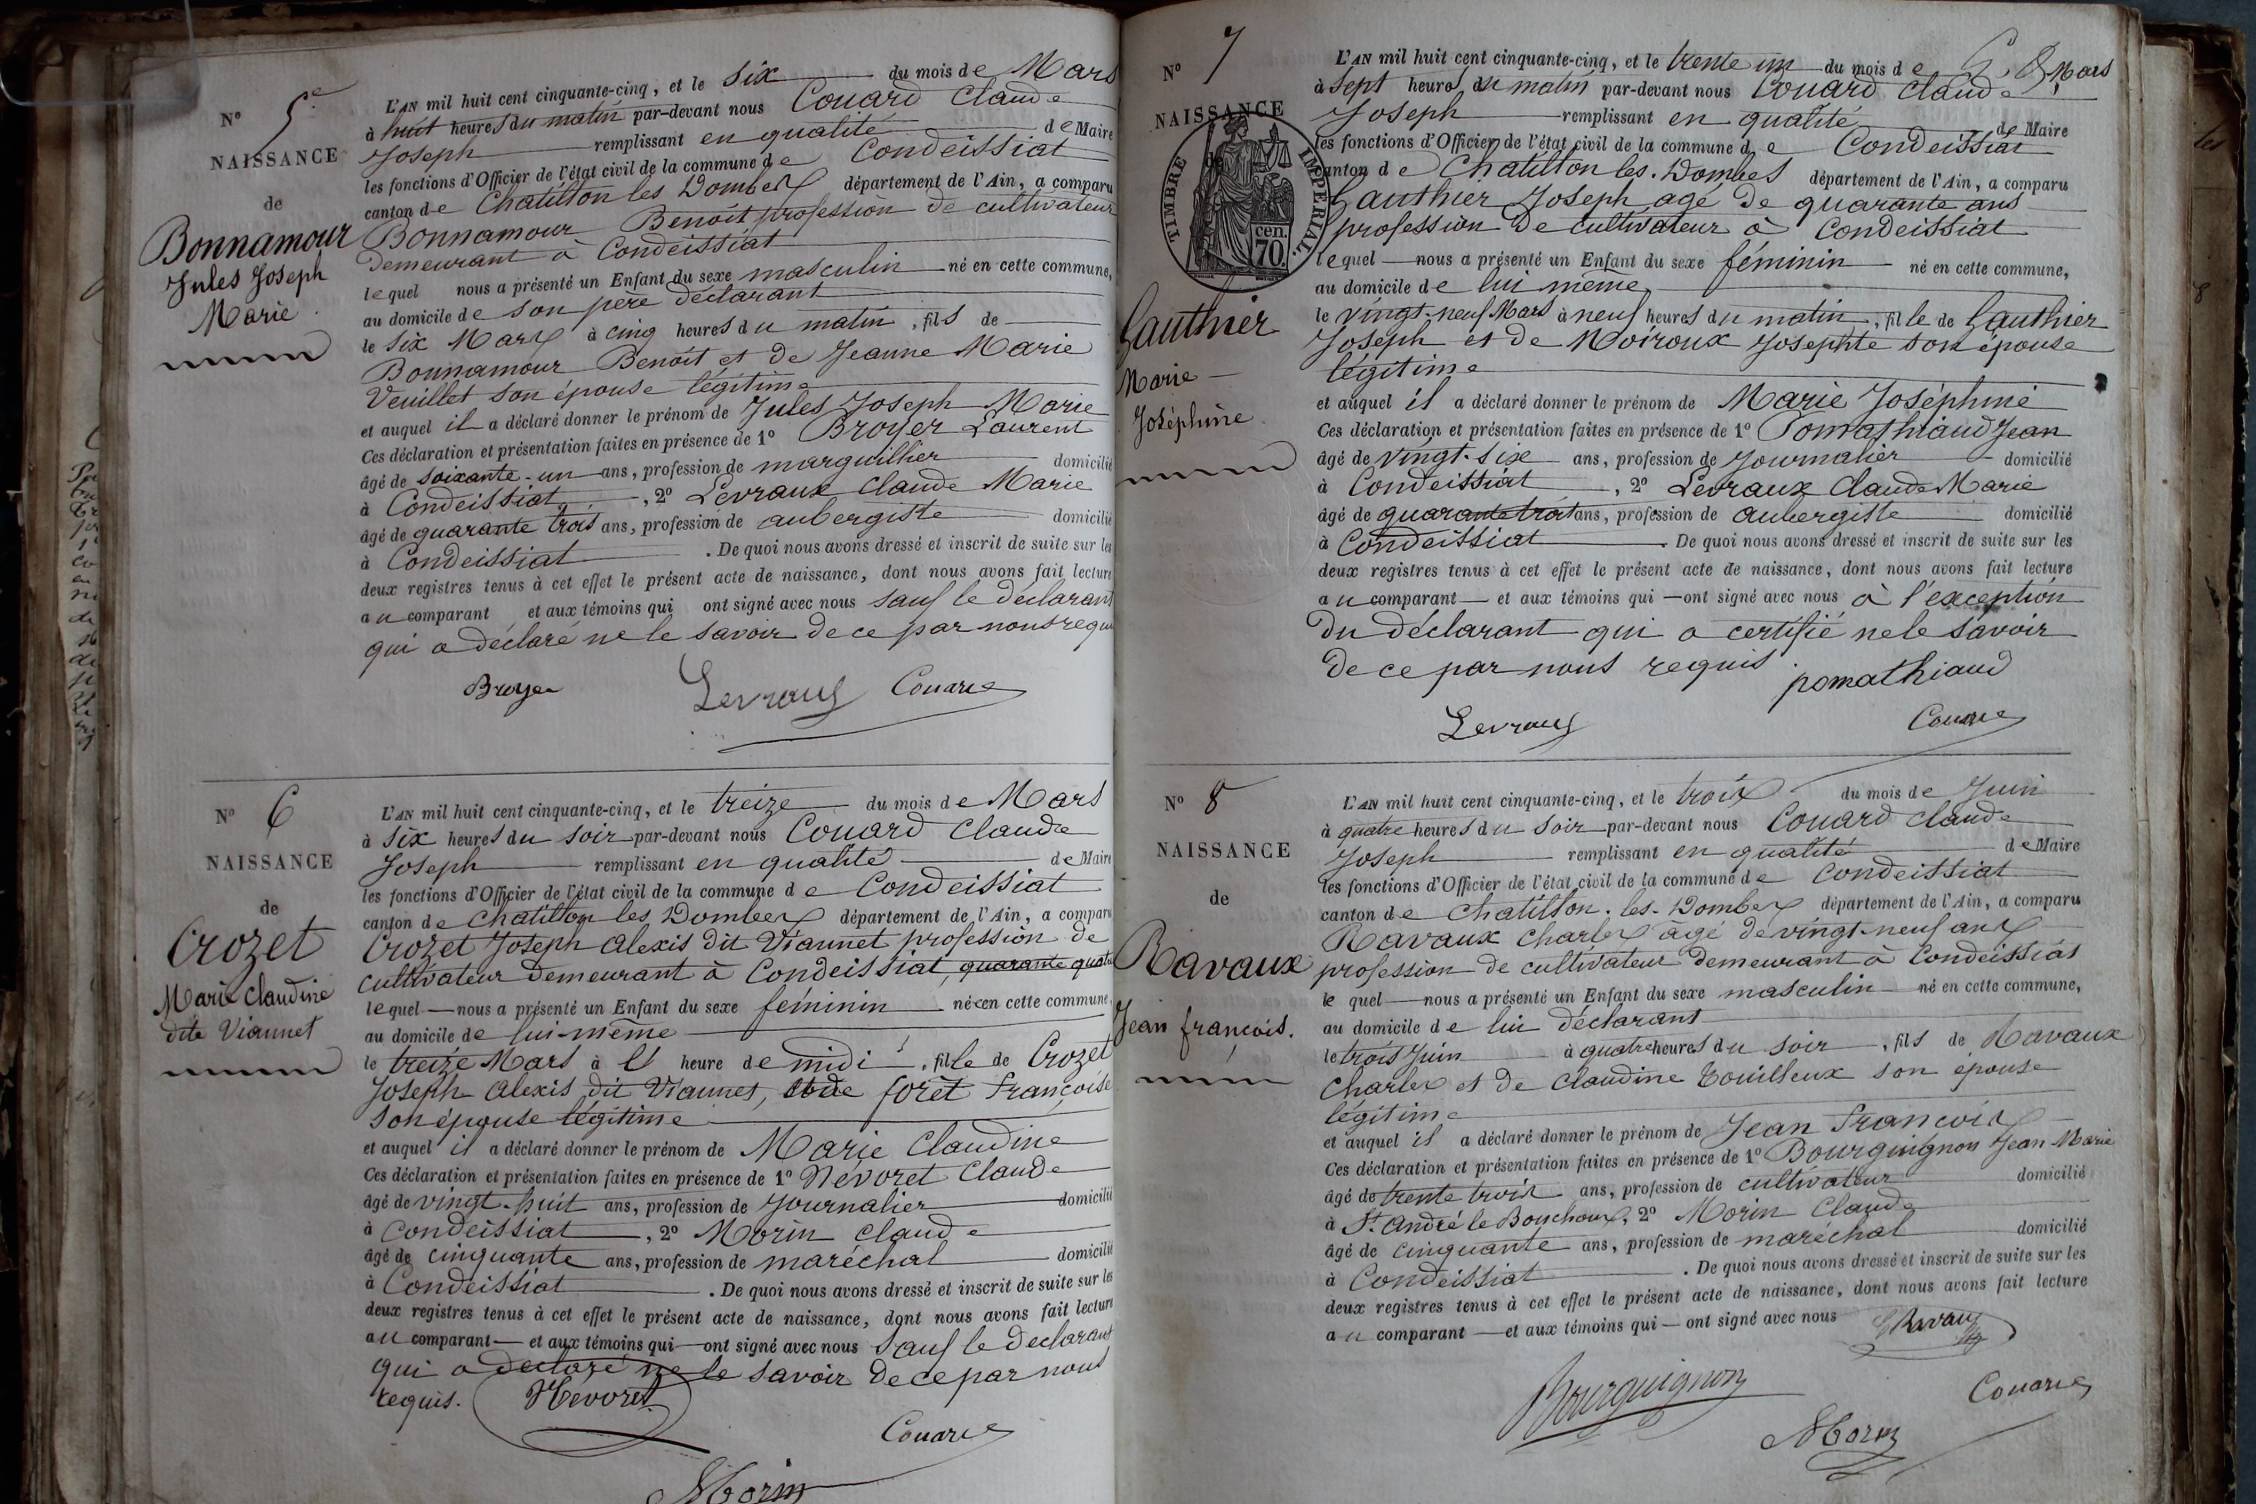 N° 5e
NAISSANCE
de
Bonnamour
Jules Joseph
Marie
L'AN mil huit cent cinquante-cinq, et le six du mois de Mars
à huit heures du matin par-devant nous Couard Claude
Joseph remplissant en qualité de Maire
les fonctions d'Officier de l'état civil de la commune de Condeissiat
canton de Chatillon les Dombes département de l'Ain, a comparu
Bonnamour Benoit profession de cultivateur
demeurant à Condeissiat
lequel nous a présenté un Enfant du sexe masculin né en cette commune,
au domicile de son père déclarant
le six Mars à cinq heures du matin, fils de
Bonnamour Benoit et de Jeanne Marie
Veuillet son épouse légitime
et auquel il a déclaré donner le prénom de Jules Joseph Marie
Ces déclaration et présentation faites en présence de 1° Broyer Laurent
âgé de soixante-un ans, profession de marguillier domicilié
à Condeissiat, 2° Levraux Claude Marie
âgé de quarante trois ans, profession de aubergiste domicilié
à Condeissiat. De quoi nous avons dressé et inscrit de suite sur les
deux registres tenus à cet effet le présent acte de naissance, dont nous avons fait lecture
au comparant et aux témoins qui ont signé avec nous sauf le déclarant
qui a déclaré ne le savoir de ce par nous requis
Broyer Levraux Couard
N° 6
NAISSANCE
de
Crozet
Marie Claudine
dite Viannet
L'AN mil huit cent cinquante-cinq, et le treize du mois de Mars
à six heures du soir par-devant nous Couard Claude
Joseph remplissant en qualité de Maire
les fonctions d'Officier de l'état civil de la commune de Condeissiat
canton de Chatillon les Dombes département de l'Ain, a comparu
Crozet Joseph Alexis dit Viannet profession de
cultivateur demeurant à Condeissiat, quarante quatre
lequel nous a présenté un Enfant du sexe féminin née en cette commune,
au domicile de lui-même
le treize Mars à heure de midi, fille de Crozet
Joseph Alexis dit Viannet, et de forêt Françoise
son épouse légitime
et auquel il a déclaré donner le prénom de Marie Claudine
Ces déclaration et présentation faites en présence de 1° Nevoret Claude
âgé de vingt-huit ans, profession de Journalier domicilié
à Condeissiat, 2° Morin Claude
âgé de cinquante ans, profession de maréchal domicilié
à Condeissiat. De quoi nous avons dressé et inscrit de suite sur les
deux registres tenus à cet effet le présent acte de naissance, dont nous avons fait lecture
au comparant et aux témoins qui ont signé avec nous sauf le déclarant
qui a déclaré ne le savoir de ce par nous
requis. Nevoret
Couard
Morin
N° 7
NAISSANCE
de
TIMBRE IMPERIAL.
70 cen.
Gauthier
Marie
Joséphine
L'AN mil huit cent cinquante-cinq, et le trente un du mois de Mars
à sept heures du matin par-devant nous Couard Claude
Joseph remplissant en qualité de Maire
les fonctions d'Officier de l'état civil de la commune de Condeissiat
canton de Chatillon les Dombes département de l'Ain, a comparu
Gauthier Joseph agé de quarante ans
profession de cultivateur à Condeissiat
lequel nous a présenté un Enfant du sexe féminin né en cette commune,
au domicile de lui même
le vingt-neuf Mars à neuf heures du matin, fille de Gauthier
Joseph et de Noiroux Josephte son épouse
légitime
et auquel il a déclaré donner le prénom de Marie Joséphine
Ces déclaration et présentation faites en présence de 1° Pomathiaud Jean
âgé de vingt-six ans, profession de Journalier domicilié
à Condeissiat, 2° Levraux Claude Marie
âgé de quarante trois ans, profession de aubergiste domicilié
à Condeissiat. De quoi nous avons dressé et inscrit de suite sur les
deux registres tenus à cet effet le présent acte de naissance, dont nous avons fait lecture
au comparant et aux témoins qui ont signé avec nous à l'exception
du déclarant qui a certifié ne le savoir
de ce par nous requis. pomathiaud
Levraux Couard
N° 8
NAISSANCE
de
Ravaux
Jean françois.
L'AN mil huit cent cinquante-cinq, et le trois du mois de Juin
à quatre heures du soir par-devant nous Couard Claude
Joseph remplissant en qualité de Maire
les fonctions d'Officier de l'état civil de la commune de Condeissiat
canton de Chatillon-les-Dombes département de l'Ain, a comparu
Ravaux Charles agé de vingt-neuf ans
profession de cultivateur demeurant à Condeissiat
lequel nous a présenté un Enfant du sexe masculin né en cette commune,
au domicile de lui déclarant
le trois Juin à quatre heures du soir, fils de Ravaux
Charles et de Claudine Touilleux son épouse
légitime
et auquel il a déclaré donner le prénom de Jean François
Ces déclaration et présentation faites en présence de 1° Bourguignon Jean Marie
âgé de trente trois ans, profession de cultivateur domicilié
à St André le Bouchoux, 2° Morin Claude
âgé de cinquante ans, profession de maréchal domicilié
à Condeissiat. De quoi nous avons dressé et inscrit de suite sur les
deux registres tenus à cet effet le présent acte de naissance, dont nous avons fait lecture
au comparant et aux témoins qui ont signé avec nous Ravaux
Bourguignon Couard
Morin